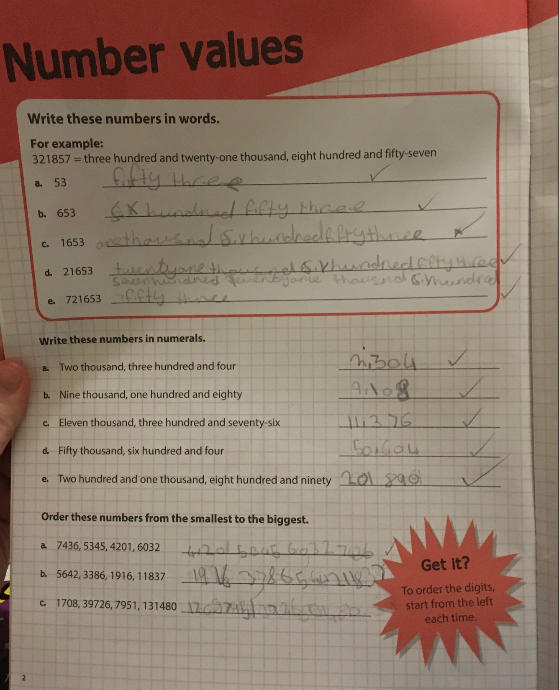 Number values
Write these numbers in words.
For example:
321857 = three hundred and twenty-one thousand, eight hundred and fifty-seven
a. 53 fifty three
b. 653 six hundred fifty three
c. 1653 onethousand six hundredfiftythree
d. 21653 twentyone thousand six hundred fifty three
seven hundred twentyone thousand six hundred
e. 721653 fifty three
Write these numbers in numerals.
a. Two thousand, three hundred and four 2,304
b. Nine thousand, one hundred and eighty
c. Eleven thousand, three hundred and seventy-six 11,376
d. Fifty thousand, six hundred and four 50,604
e. Two hundred and one thousand, eight hundred and ninety 201 890
Order these numbers from the smallest to the biggest.
a. 7436, 5345, 4201, 6032
b. 5642, 3386, 1916, 11837
c. 1708, 39726, 7951, 131480
Get it?
To order the digits,
start from the left
each time.
2